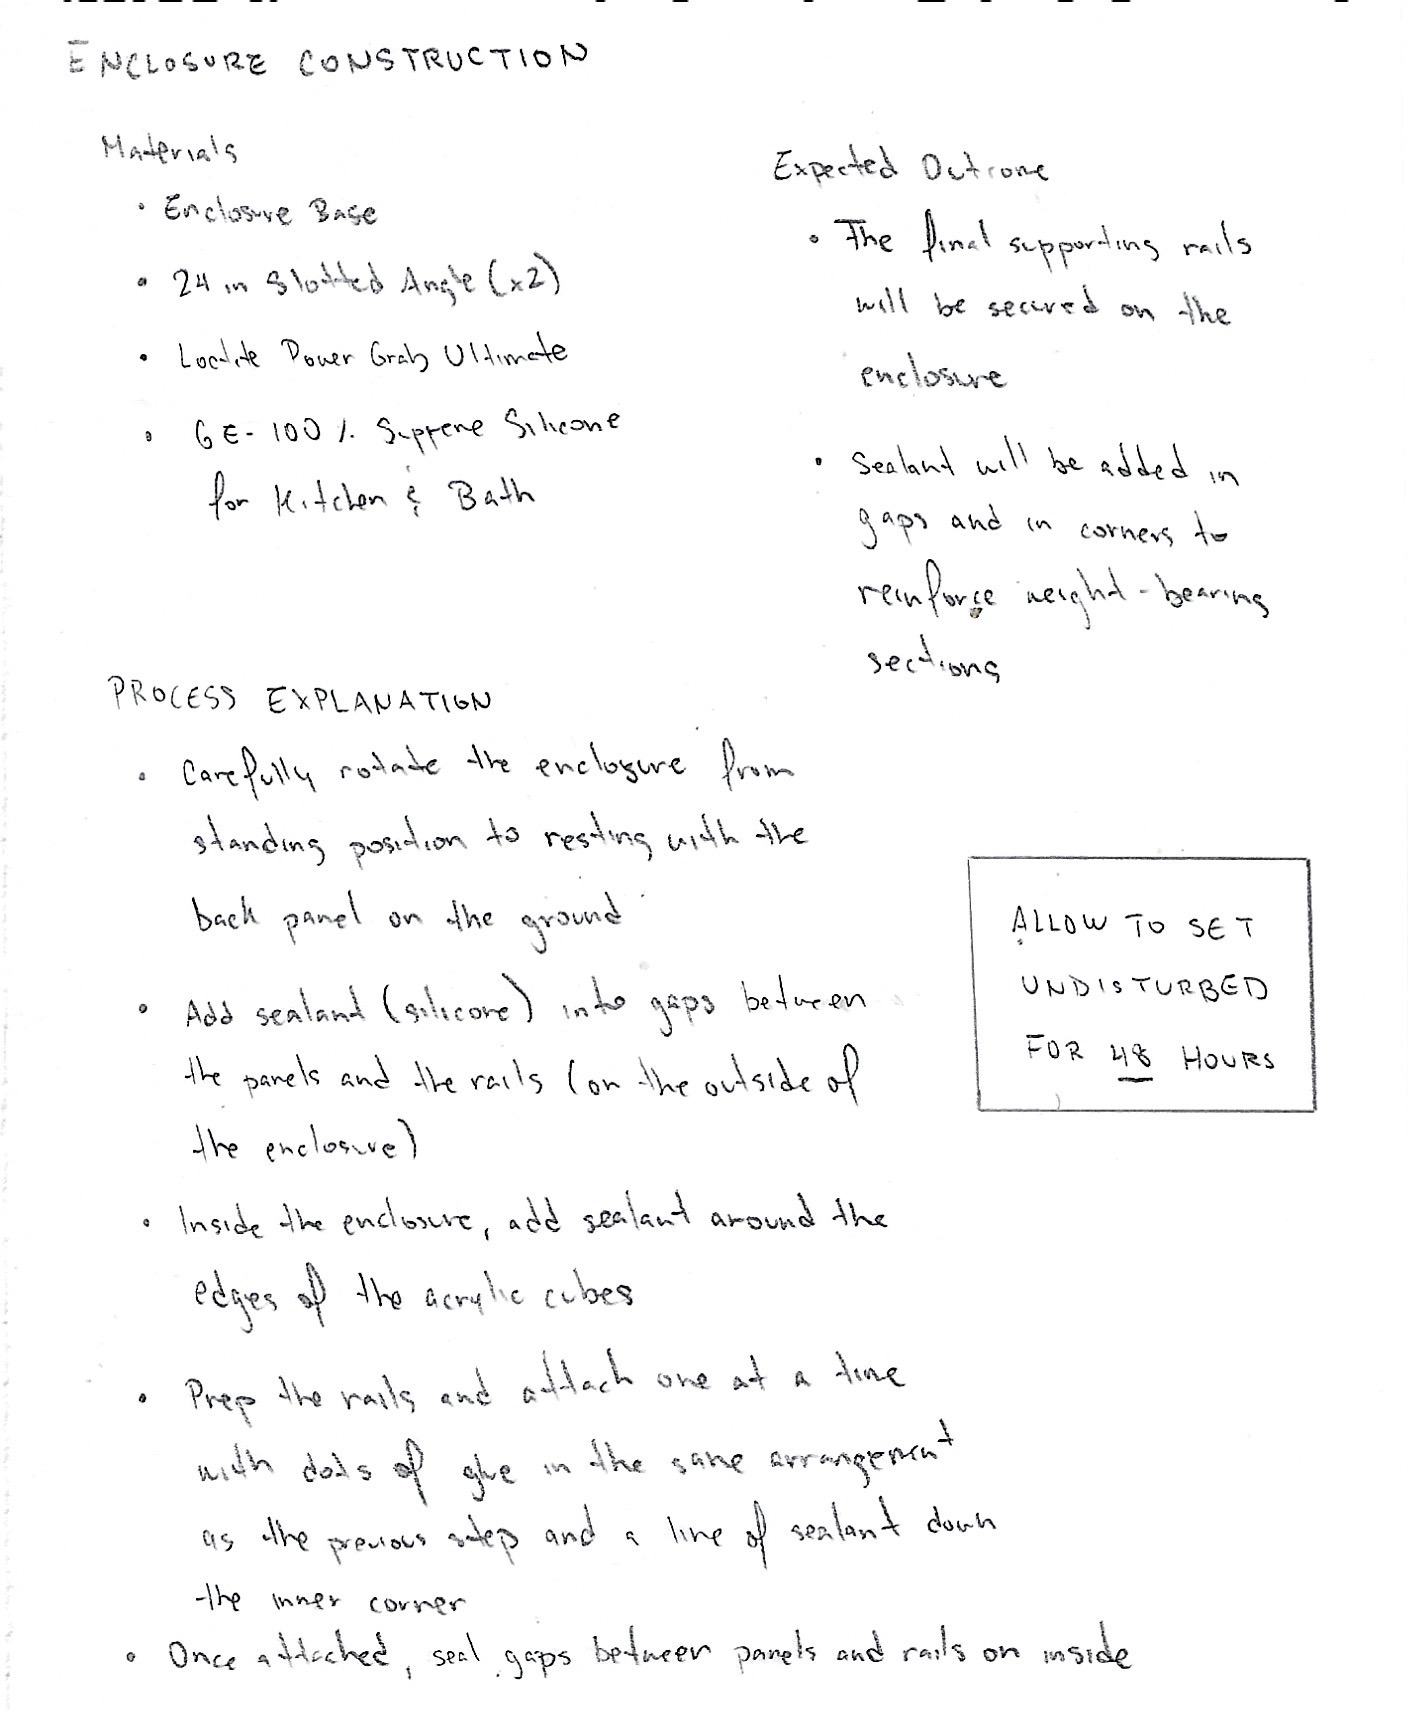 ENCLOSURE CONSTRUCTION
Materials
• Enclosure Base
• 24 in Slotted Angle (x2)
• Loctite Power Grab Ultimate
• GE - 100% Supreme Silicone
for Kitchen & Bath
Expected Outcome
• The final supporting rails
will be secured on the
enclosure
• Sealant will be added in
gaps and in corners to
reinforce weight-bearing
sections
PROCESS EXPLANATION
• Carefully rotate the enclosure from
standing position to resting with the
back panel on the ground
• Add sealant (silicone) into gaps between
the panels and the rails (on the outside of
the enclosure)
• Inside the enclosure, add sealant around the
edges of the acrylic cubes
• Prep the rails and attach one at a time
with dots of glue in the same arrangement
as the previous step and a line of sealant down
the inner corner
• Once attached, seal gaps between panels and rails on inside
ALLOW TO SET
UNDISTURBED
FOR 48 HOURS